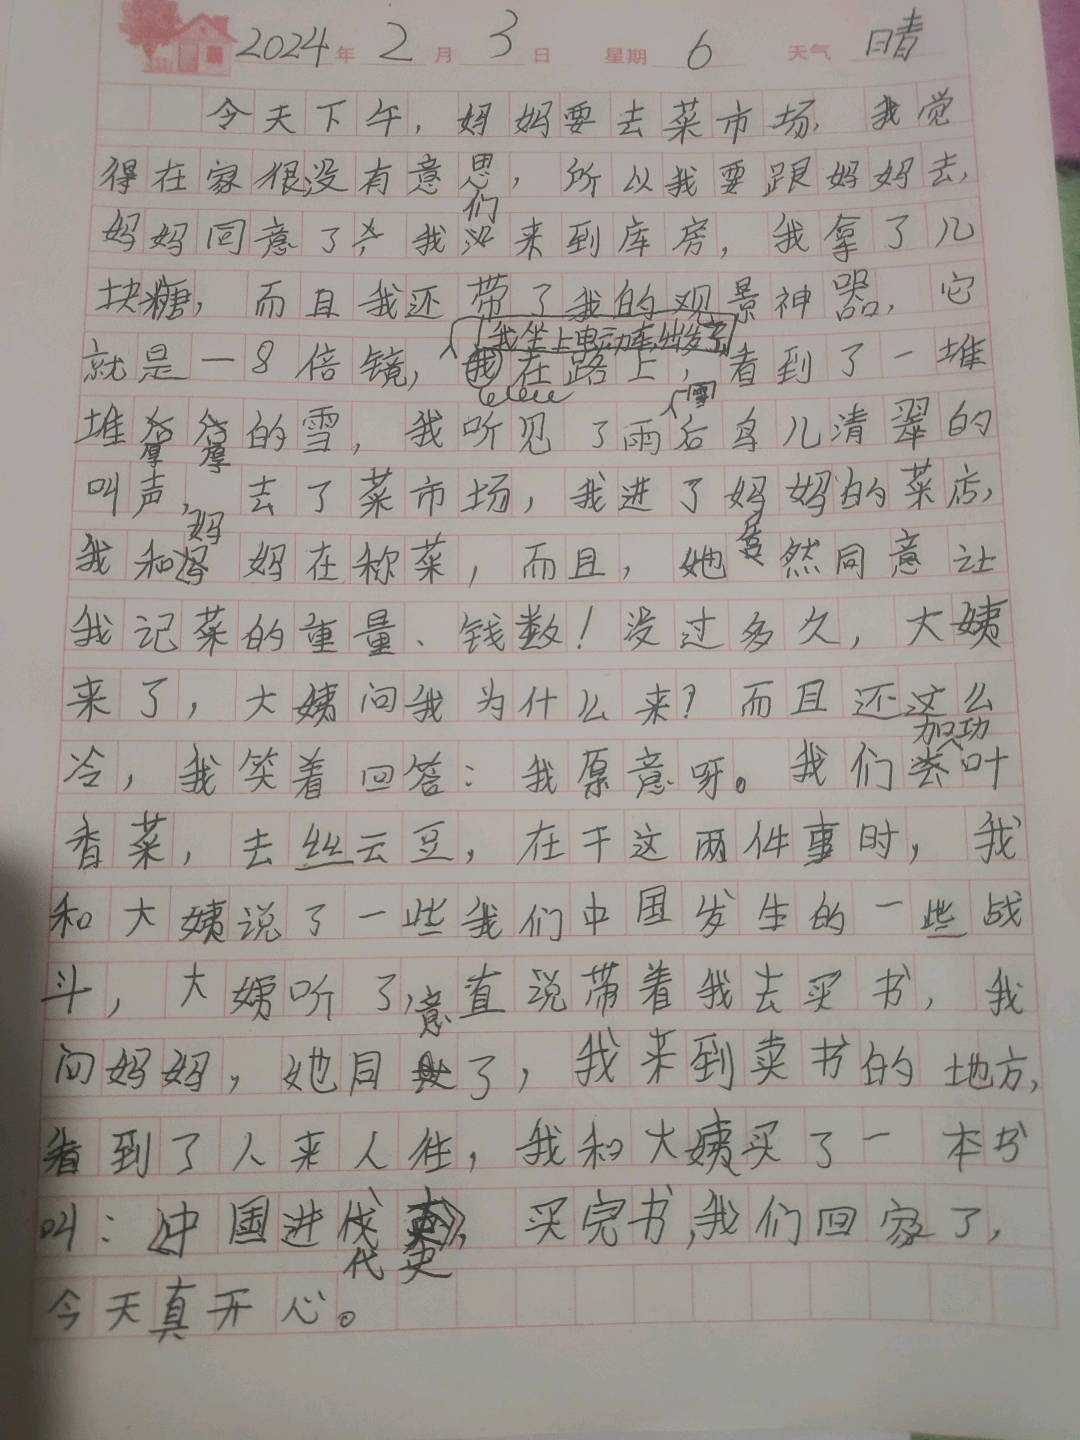 2024年2月3日 星期6 天气晴
今天下午，妈妈要去菜市场，我觉
得在家很没有意思，所以我要跟妈妈去，
妈妈同意了，我们来到库房，我拿了几
块糖，而且我还带了我的观景神器，它
我坐上电动车出发了
就是一8倍镜，在路上，看到了一堆
堆厚厚的雪，我听见了雨雪后鸟儿清翠的
叫声，去了菜市场，我进了妈妈的菜店，
我和妈妈在称菜，而且，她居然同意让
我记菜的重量、钱数！没过多久，大姨
来了，大姨问我为什么来？而且还这么
冷，我笑着回答：我原意呀。我们加功叶
香菜，去丝云豆，在干这两件事时，我
和大姨说了一些我们中国发生的一些战
斗，大姨听了，直说带着我去买书，我
问妈妈，她同意了，我来到卖书的地方，
看到了人来人往，我和大姨买了一本书
叫：《中国进代史》，买完书，我们回家了，
今天真开心。